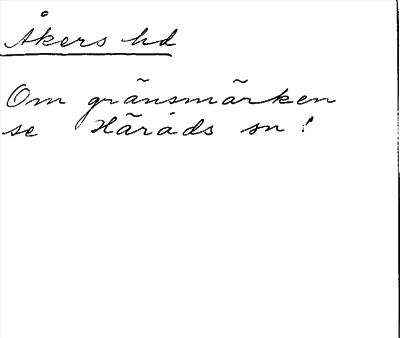 Åkers hd
Om gränsmärken
se Härads sn!